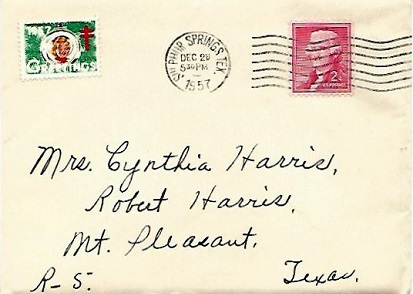 GREETINGS
SULPHUR SPRINGS, TEX.
DEC 29
5 30 PM
1957
2¢
U.S. POSTAGE
Mrs. Cynthia Harris,
Robert Harris,
Mt. Pleasant,
R-5. Texas.